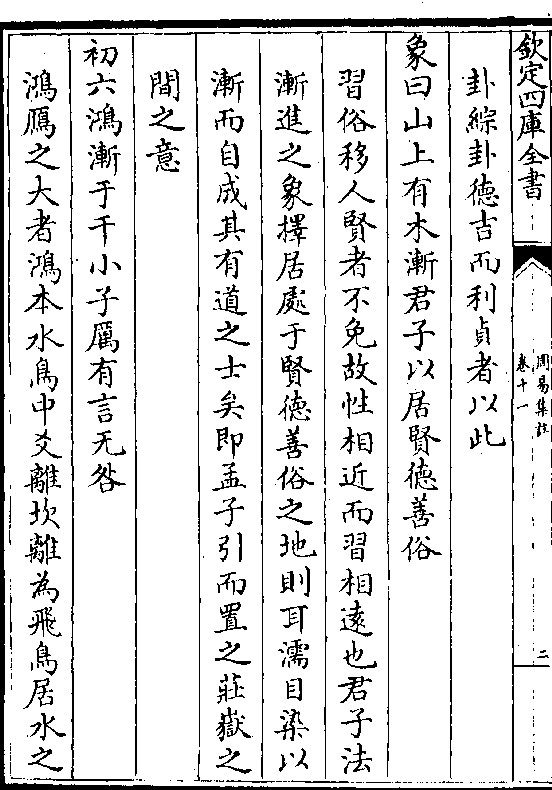 欽定四庫全書
周易集註
卷十一
二
卦綜卦德吉而利貞者以此
象曰山上有木漸君子以居賢德善俗
習俗移人賢者不免故性相近而習相遠也君子法
漸進之象擇居處于賢德善俗之地則耳濡目染以
漸而自成其有道之士矣即孟子引而置之莊嶽之
間之意
初六鴻漸于干小子厲有言无咎
鴻鴈之大者鴻本水鳥中爻離坎離為飛鳥居水之